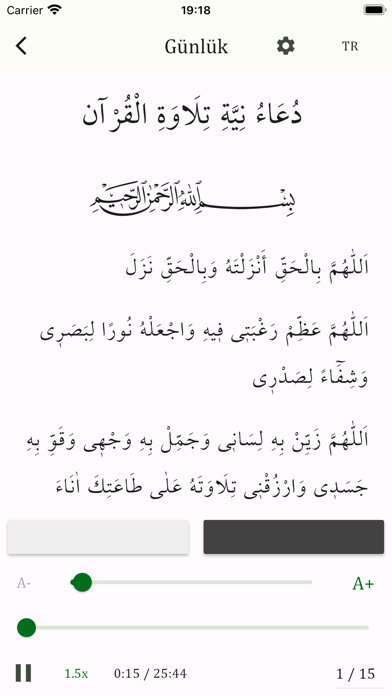 Carrier 19:18
Günlük TR
دُعَاءُ نِيَّةِ تِلَاوَةِ الْقُرْآن
بِسْمِ اللهِ الرَّحْمٰنِ الرَّحِيْمِ
اَللّٰهُمَّ بِالْحَقِّ أَنْزَلْتَهُ وَبِالْحَقِّ نَزَلَ
اَللّٰهُمَّ عَظِّمْ رَغْبَتِى فِيهِ وَاجْعَلْهُ نُورًا لِبَصَرِى
وَشِفَٓاءً لِصَدْرِى
اَللّٰهُمَّ زَيِّنْ بِهِ لِسَانِى وَجَمِّلْ بِهِ وَجْهِى وَقَوِّ بِهِ
جَسَدِى وَارْزُقْنِى تِلَاوَتَهُ عَلٰى طَاعَتِكَ اٰنَاءَ
A- A+
1.5x 0:15 / 25:44 1 / 15